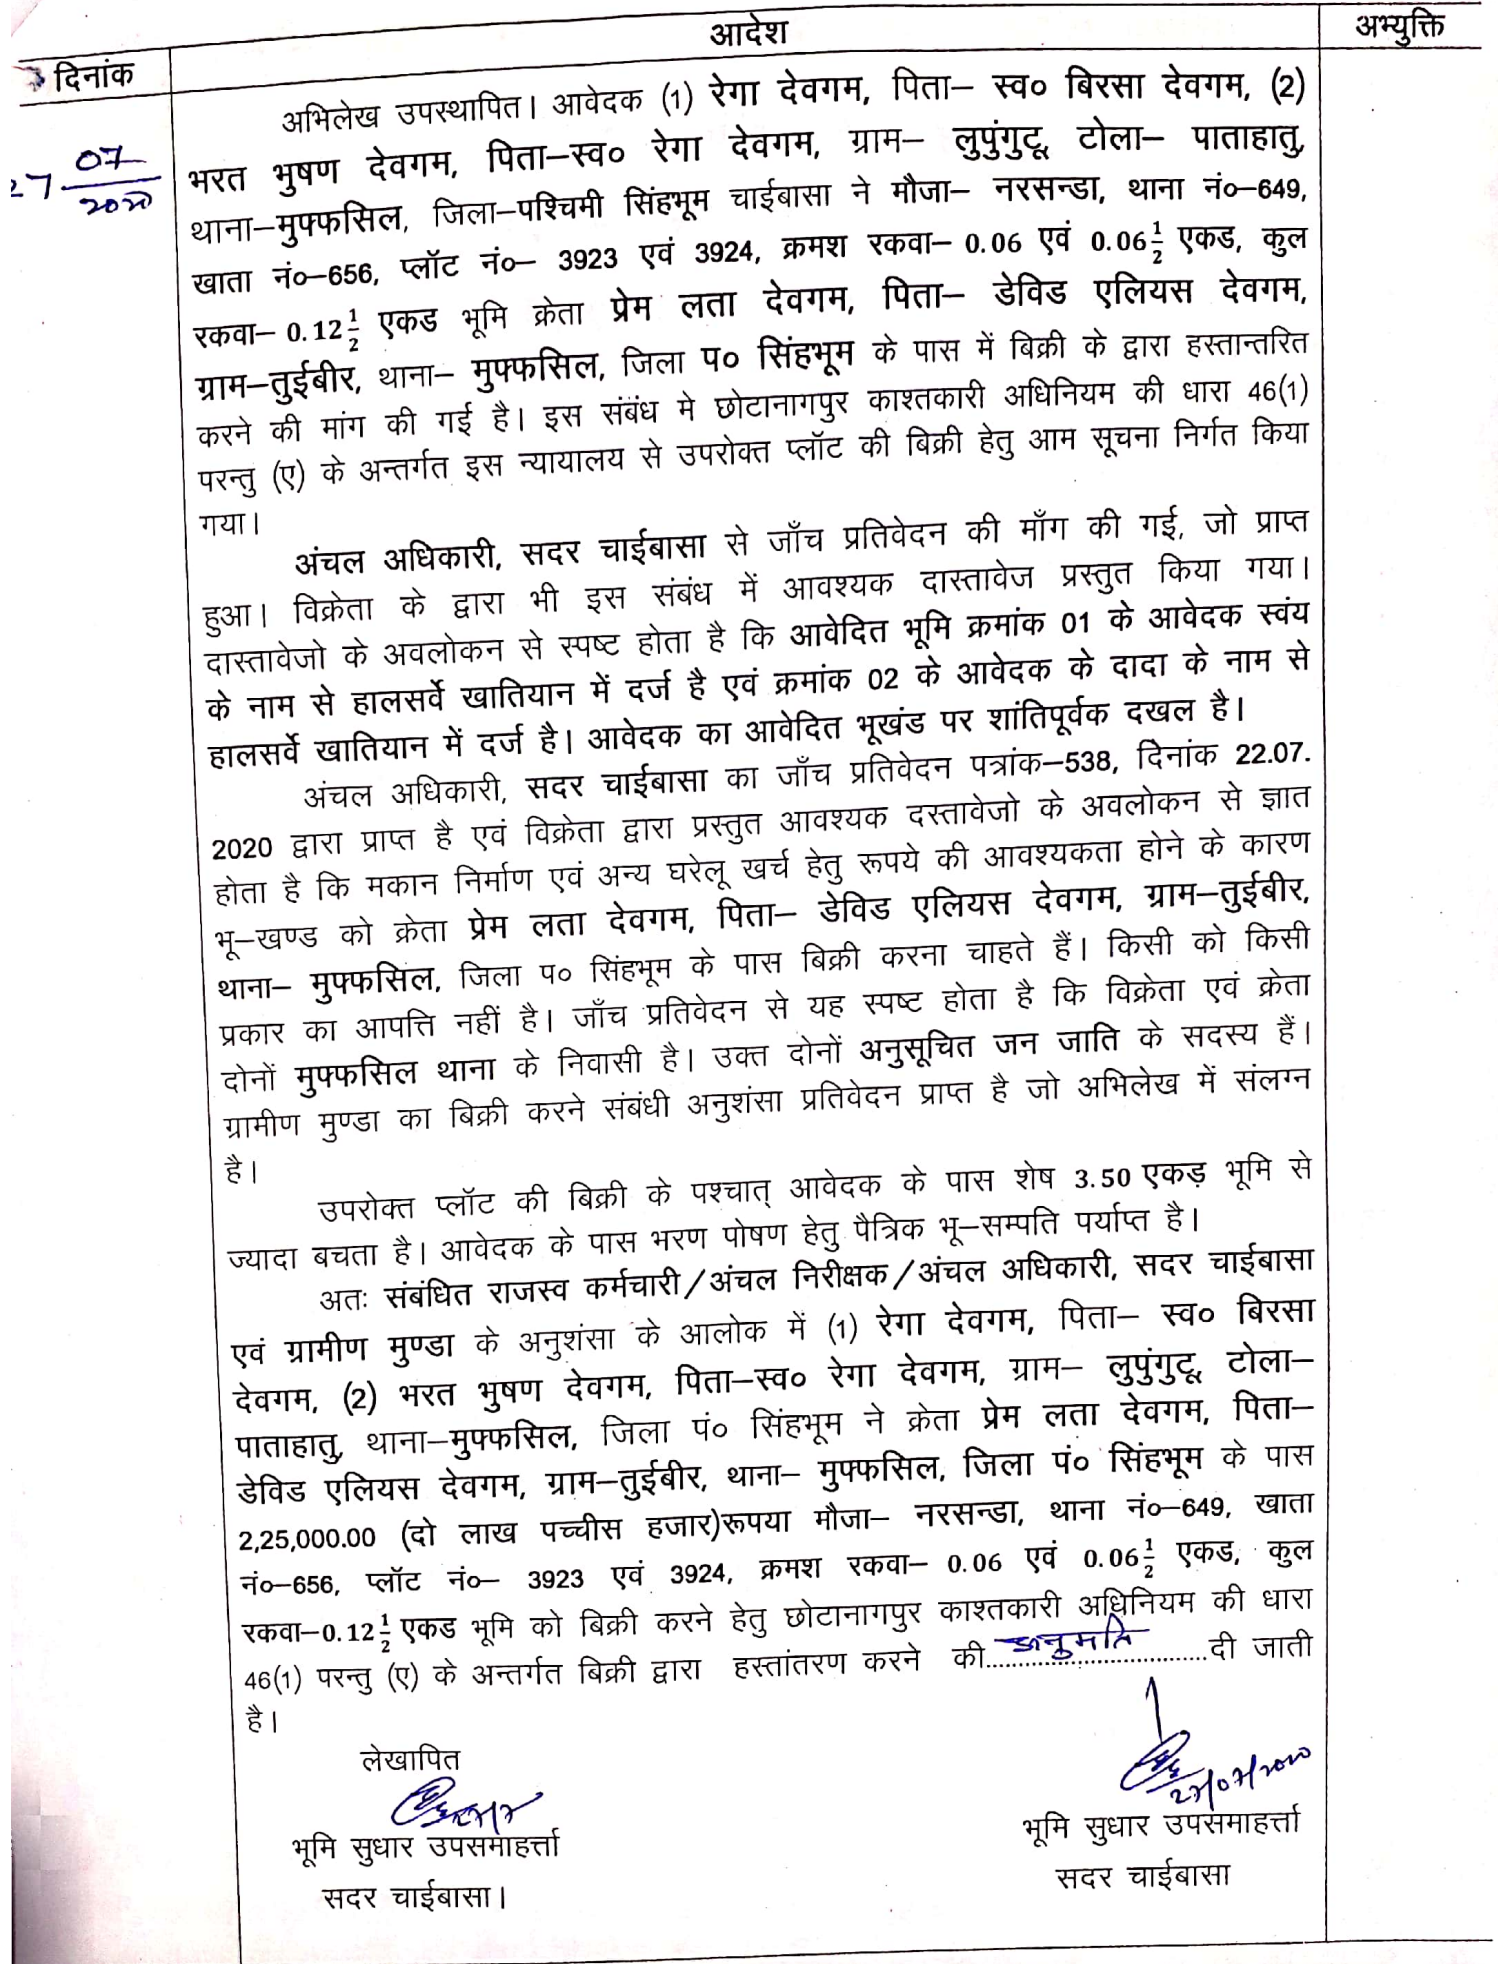 आदेश
अभ्युक्ति
दिनांक
27 07/2020
अभिलेख उपस्थापित। आवेदक (1) रेगा देवगम, पिता– स्व० बिरसा देवगम, (2)
भरत भुषण देवगम, पिता–स्व० रेगा देवगम, ग्राम– लुपुंगुटू, टोला– पाताहातु,
थाना–मुफ्फसिल, जिला–पश्चिमी सिंहभूम चाईबासा ने मौजा– नरसन्डा, थाना नं०–649,
खाता नं०–656, प्लॉट नं०– 3923 एवं 3924, क्रमश रकवा– 0.06 एवं 0.06½ एकड, कुल
रकवा– 0.12½ एकड भूमि क्रेता प्रेम लता देवगम, पिता– डेविड एलियस देवगम,
ग्राम–तुईबीर, थाना– मुफ्फसिल, जिला प० सिंहभूम के पास में बिक्री के द्वारा हस्तान्तरित
करने की मांग की गई है। इस संबंध मे छोटानागपुर काश्तकारी अधिनियम की धारा 46(1)
परन्तु (ए) के अन्तर्गत इस न्यायालय से उपरोक्त प्लॉट की बिक्री हेतु आम सूचना निर्गत किया
गया।
अंचल अधिकारी, सदर चाईबासा से जाँच प्रतिवेदन की माँग की गई, जो प्राप्त
हुआ। विक्रेता के द्वारा भी इस संबंध में आवश्यक दास्तावेज प्रस्तुत किया गया।
दास्तावेजो के अवलोकन से स्पष्ट होता है कि आवेदित भूमि क्रमांक 01 के आवेदक स्वंय
के नाम से हालसर्वे खातियान में दर्ज है एवं क्रमांक 02 के आवेदक के दादा के नाम से
हालसर्वे खातियान में दर्ज है। आवेदक का आवेदित भूखंड पर शांतिपूर्वक दखल है।
अंचल अधिकारी, सदर चाईबासा का जाँच प्रतिवेदन पत्रांक–538, दिनांक 22.07.
2020 द्वारा प्राप्त है एवं विक्रेता द्वारा प्रस्तुत आवश्यक दस्तावेजो के अवलोकन से ज्ञात
होता है कि मकान निर्माण एवं अन्य घरेलू खर्च हेतु रूपये की आवश्यकता होने के कारण
भू–खण्ड को क्रेता प्रेम लता देवगम, पिता– डेविड एलियस देवगम, ग्राम–तुईबीर,
थाना– मुफ्फसिल, जिला प० सिंहभूम के पास बिक्री करना चाहते हैं। किसी को किसी
प्रकार का आपत्ति नहीं है। जाँच प्रतिवेदन से यह स्पष्ट होता है कि विक्रेता एवं क्रेता
दोनों मुफ्फसिल थाना के निवासी है। उक्त दोनों अनुसूचित जन जाति के सदस्य हैं।
ग्रामीण मुण्डा का बिक्री करने संबंधी अनुशंसा प्रतिवेदन प्राप्त है जो अभिलेख में संलग्न
है।
उपरोक्त प्लॉट की बिक्री के पश्चात् आवेदक के पास शेष 3.50 एकड़ भूमि से
ज्यादा बचता है। आवेदक के पास भरण पोषण हेतु पैत्रिक भू–सम्पति पर्याप्त है।
अतः संबंधित राजस्व कर्मचारी/अंचल निरीक्षक/अंचल अधिकारी, सदर चाईबासा
एवं ग्रामीण मुण्डा के अनुशंसा के आलोक में (1) रेगा देवगम, पिता– स्व० बिरसा
देवगम, (2) भरत भुषण देवगम, पिता–स्व० रेगा देवगम, ग्राम– लुपुंगुटू, टोला–
पाताहातु, थाना–मुफ्फसिल, जिला पं० सिंहभूम ने क्रेता प्रेम लता देवगम, पिता–
डेविड एलियस देवगम, ग्राम–तुईबीर, थाना– मुफ्फसिल, जिला पं० सिंहभूम के पास
2,25,000.00 (दो लाख पच्चीस हजार)रूपया मौजा– नरसन्डा, थाना नं०–649, खाता
नं०–656, प्लॉट नं०– 3923 एवं 3924, क्रमश रकवा– 0.06 एवं 0.06½ एकड, कुल
रकवा–0.12½ एकड भूमि को बिक्री करने हेतु छोटानागपुर काश्तकारी अधिनियम की धारा
46(1) परन्तु (ए) के अन्तर्गत बिक्री द्वारा हस्तांतरण करने की अनुमति दी जाती
है।
लेखापित
27/07/2020
भूमि सुधार उपसमाहर्त्ता
भूमि सुधार उपसमाहर्त्ता
सदर चाईबासा
सदर चाईबासा।